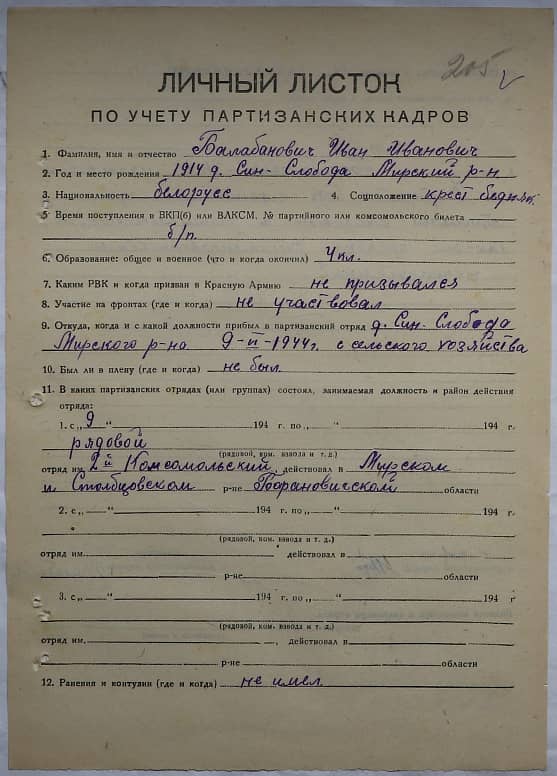 205 v
ЛИЧНЫЙ ЛИСТОК
ПО УЧЕТУ ПАРТИЗАНСКИХ КАДРОВ
1. Фамилия, имя и отчество Балабанович Иван Иванович
2. Год и место рождения 1914 д. Син- Слобода Мирский р-н
3. Национальность белорусс 4. Соцположение крест бедняк.
5 Время поступления в ВКП(б) или ВЛКСМ, № партийного или комсомольского билета
б/п.
6. Образование: общее и военное (что и когда окончил) 4 кл.
7. Каким РВК и когда призван в Красную Армию не призывался
8. Участие на фронтах (где и когда) не участвовал
9. Откуда, когда и с какой должности прибыл в партизанский отряд д. Син- Слобода
Мирского р-на 9-II-1944г. с сельского хозяйства
10. Был ли в плену (где и когда) не был.
11. В каких партизанских отрядах (или группах) состоял, занимаемая должность и район действия
отряда:
1. с „ 9 “ 194 г. по „ “ 194 г.
рядовой
(рядовой, ком. взвода и т. д.)
отряд им. 2й Комсомольский, действовал в Мирском
и Столбцовском р-не Барановисском области
2. с „ “ 194 г. по „ “ 194 г.
(рядовой, ком. взвода и т. д.)
отряд им. действовал в
р-не области
3. с „ “ 194 г. по „ “ 194 г
(рядовой, ком. взвода и т. д.)
отряд им. , действовал в
р-не области
12. Ранения и контузии (где и когда) не имел